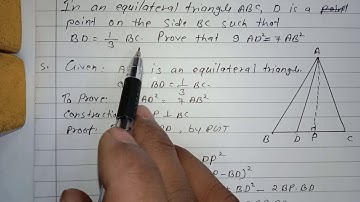 In an equilateral triangle ABC, D is a point
point on the side BC such that
BD = 1/3 BC. Prove that 9 AD² = 7 AB²
S. Given: is an equilateral triangle
BD = 1/3 BC.
To Prove: AD² = 7 AB²
Construction: P ⊥ BC
Proof: D, by PGT
DP²
- BD)²
+ BD² - 2BP.BD
A
B D P C